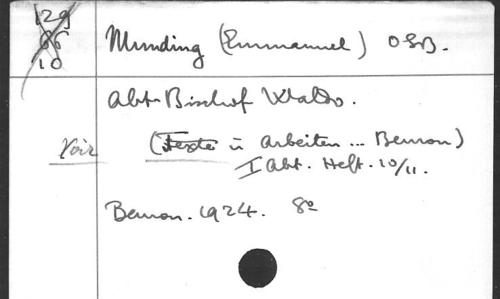 129
66
10
Munding (Emmanuel) OSB.
Abt-Bischof Waldo.
Voir (Texte u Arbeiten ... Beuron)
I Abt. Heft. 10/11.
Beuron. 1924. 8º